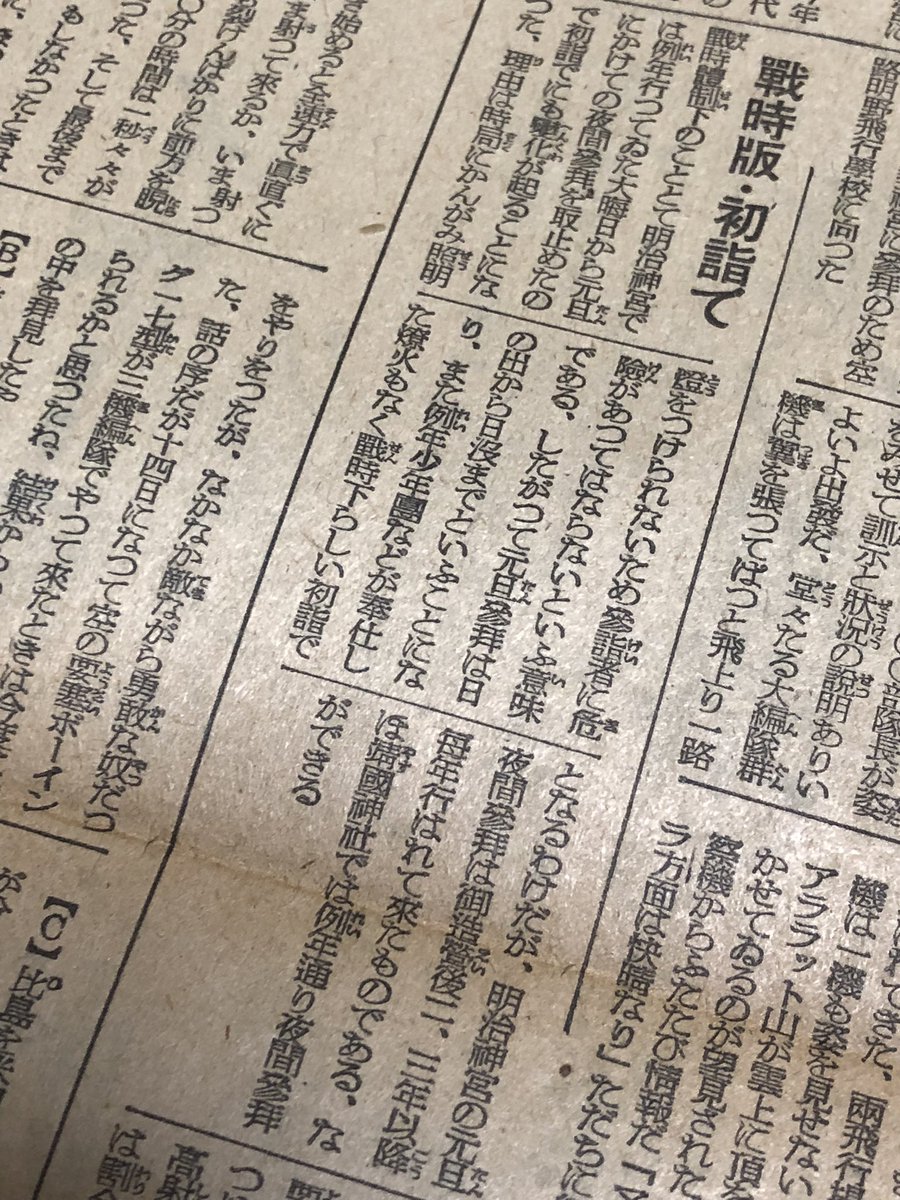 神宮に參拜のため空
路明野飛行學校に向つた
〇〇部隊長が姿
をみせて訓示と狀況の說明ありい
よいよ出發だ、堂々たる大編隊群
機は翼を張つてぱつと飛上り一路
はれてきた、兩飛行
機は一機も姿を見せない
アララット山が雲上に頂
かせてゐるのが望見された
察機からふたたび情報だ「マ
ラ方面は快晴なり」ただちに
戰時版・初詣で
戰時體制下のこととて明治神宮で
は例年行つてゐた大晦日から元旦
にかけての夜間參拜を取止めたの
で初詣でにも變化が起ることにな
つた、理由は時局にかんがみ照明
燈をつけられないため參詣者に危
險があつてはならないといふ意味
である、したがつて元旦參拜は日
の出から日沒までといふことにな
り、また例年少年團などが奉仕し
た燎火もなく戰時下らしい初詣で
となるわけだが、明治神宮の元旦
夜間參拜は御造營後二、三年以降
每年行はれて來たものである、な
ほ靖國神社では例年通り夜間參拜
ができる
き始めると全速力で直直ぐに
射つて來るか、いま射つ
裂けんばかりに前方を睨
分の時間は一秒々々が
つた、そして最後まで
もしなかつたときは
をやりをつたが、なかなか敵ながら勇敢な奴だつ
た、話の序だが十四日になつて空の要塞ボーイン
グ一七型が三機編隊でやつて來たときは今
られるかと思つたね、結果
の中を拜見したや
【B】
【C】比島を